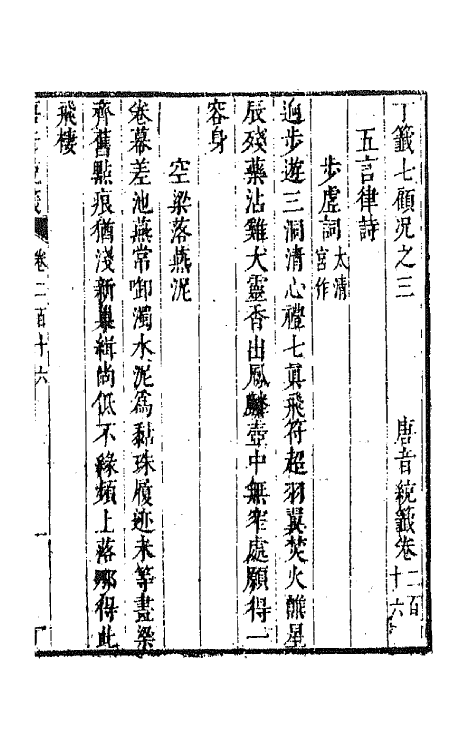 丁籤七顧况之三　唐音統籤卷二百十六
五言律詩
步虛詞太清宫作
迴步遊三洞清心禮七眞飛符超羽翼焚火醮星
辰殘藥沾雞犬靈香出鳳麟壺中無窄處願得一
容身
空梁落燕泥
卷幕差池燕常啣濁水泥爲黏珠履迹未等畫梁
齊舊點痕猶淺新巢緝尚低不緣頻上落那得此
飛棲
卷二百十六
一